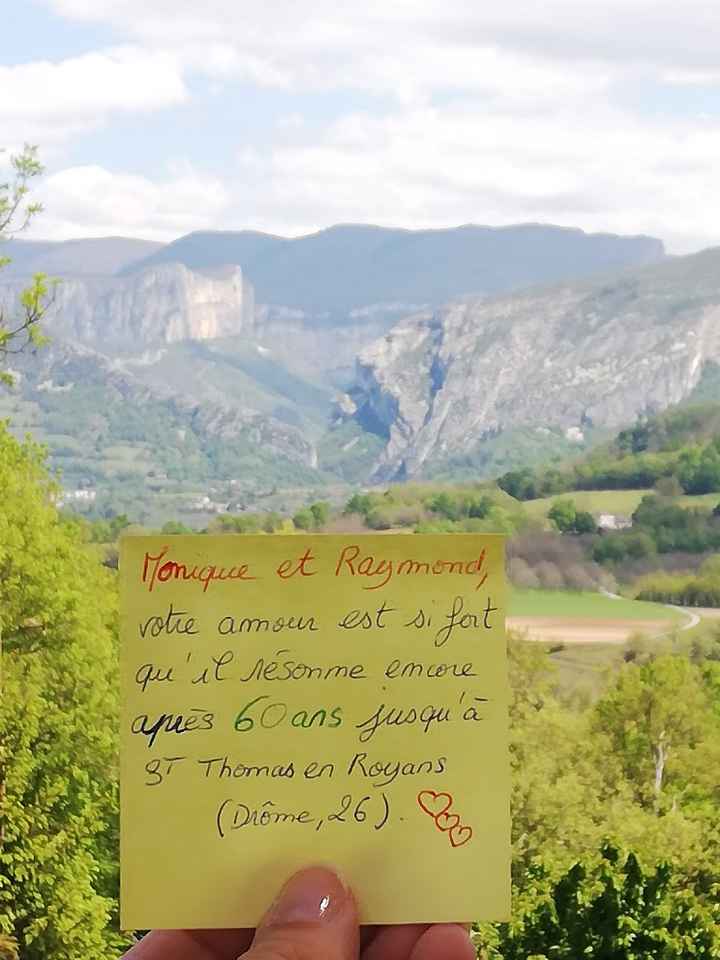 Monique et Raymond,
votre amour est si fort
qu'il résonne encore
après 60 ans jusqu'à
ST Thomas en Royans
(Drôme, 26).